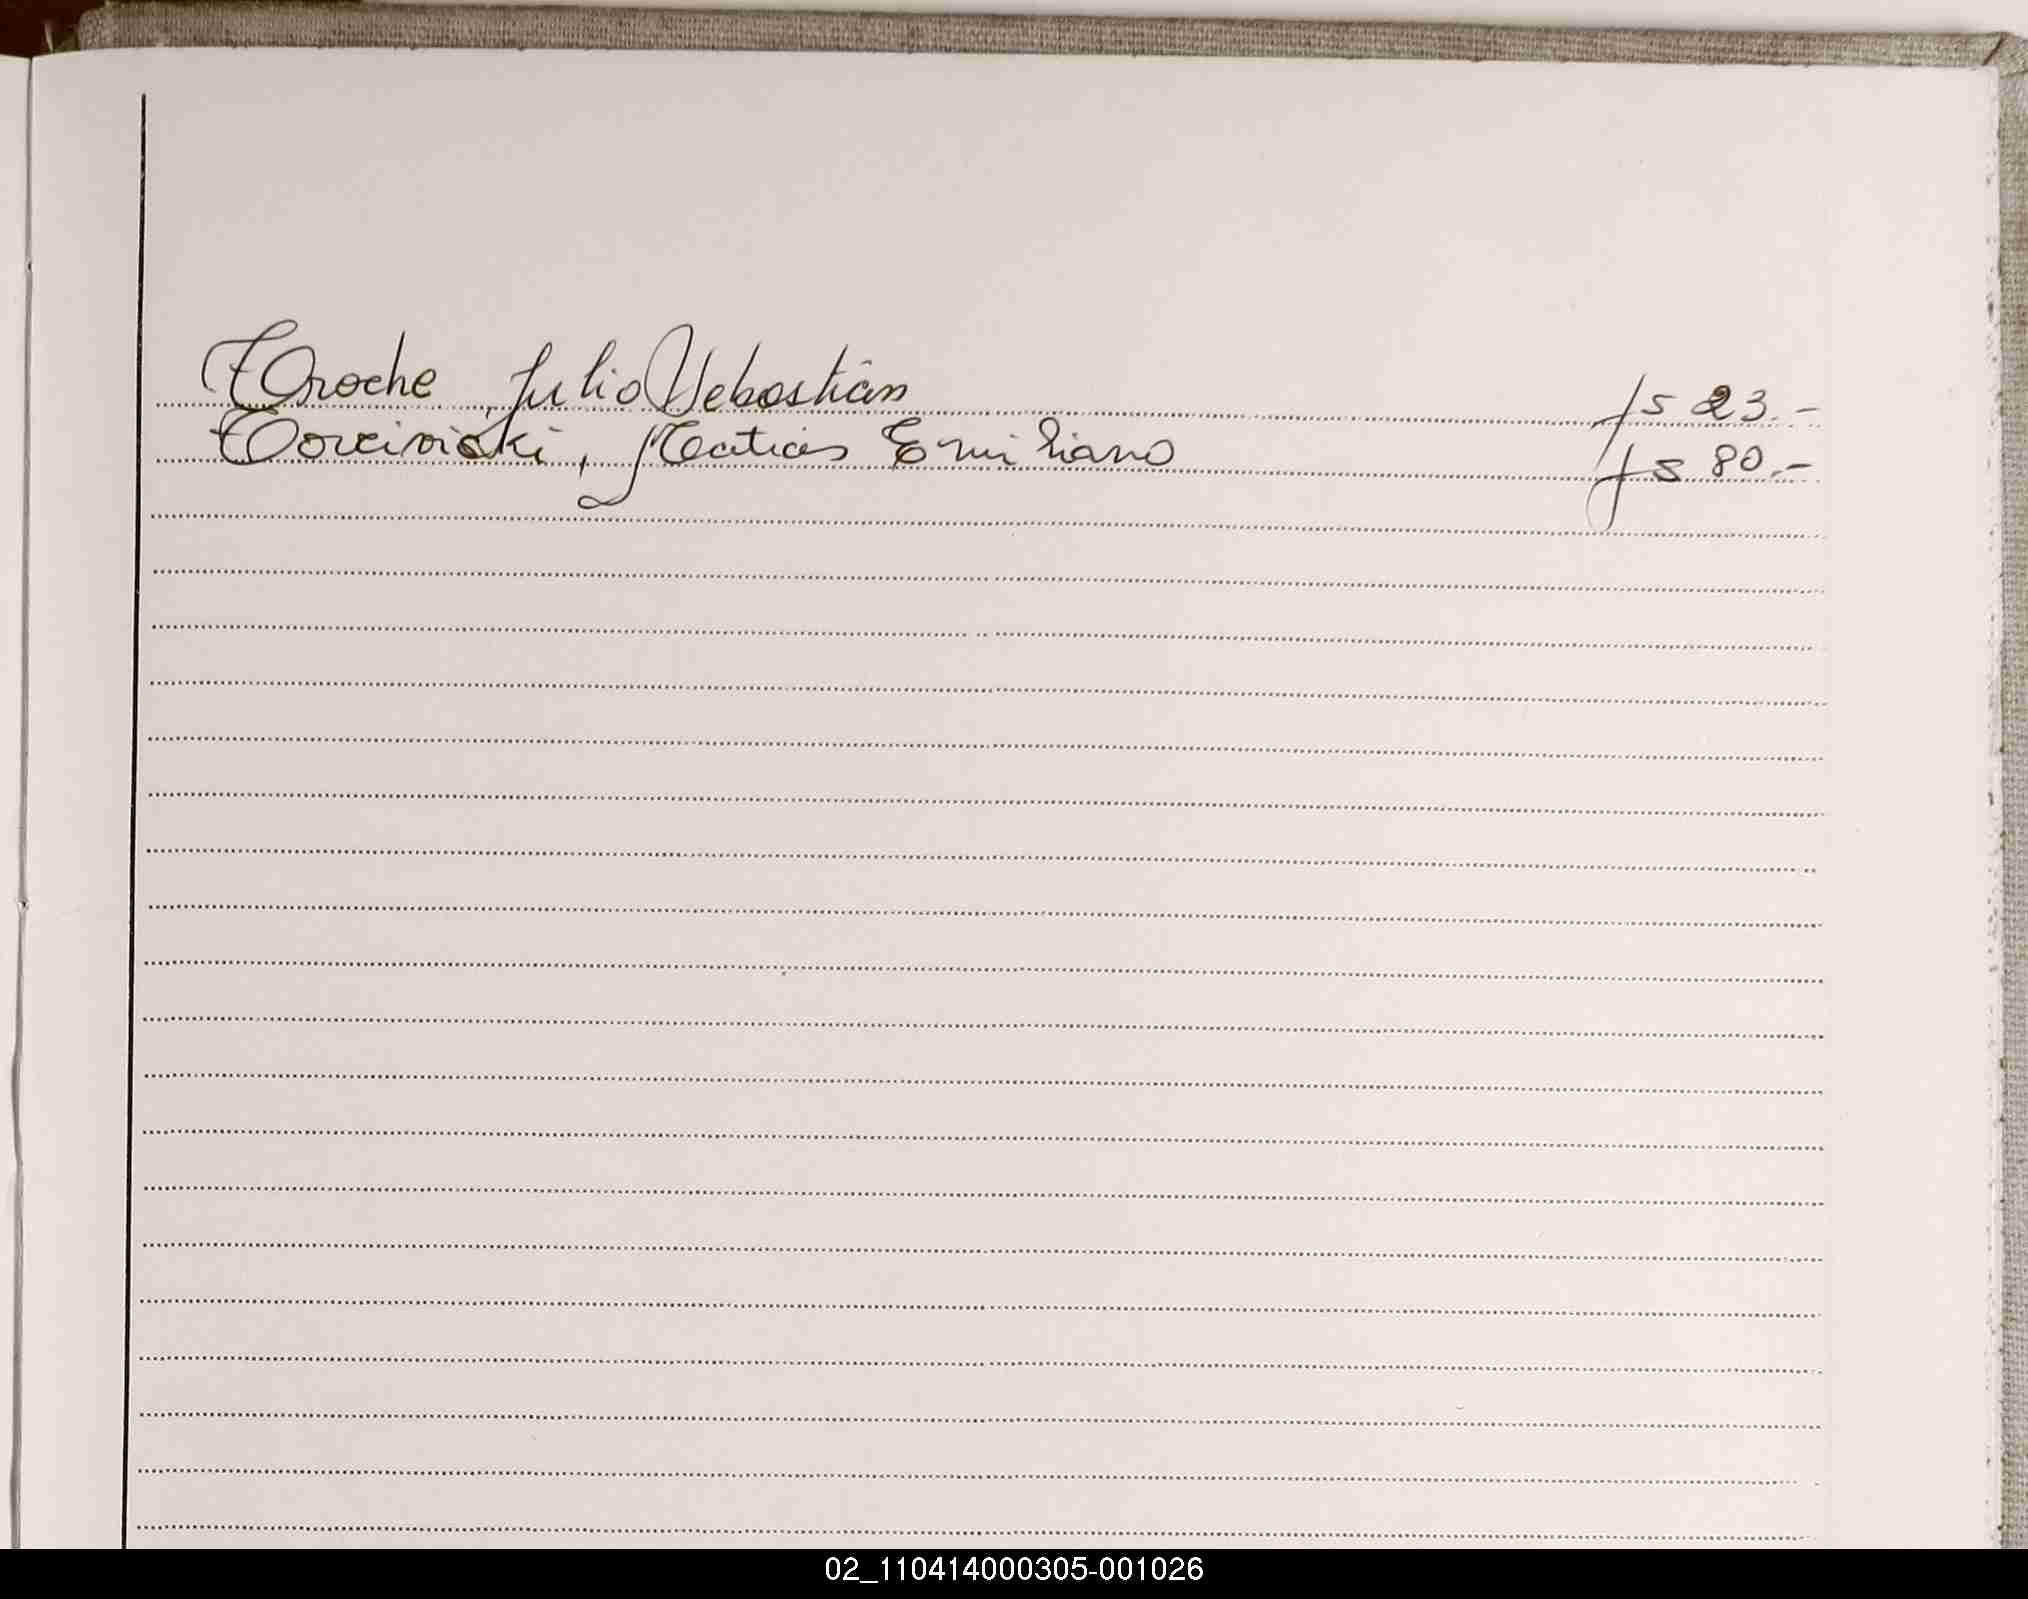 Troche Julio Sebastián fs 23.-
, Matias Emiliano fs 80.-
02_110414000305-001026